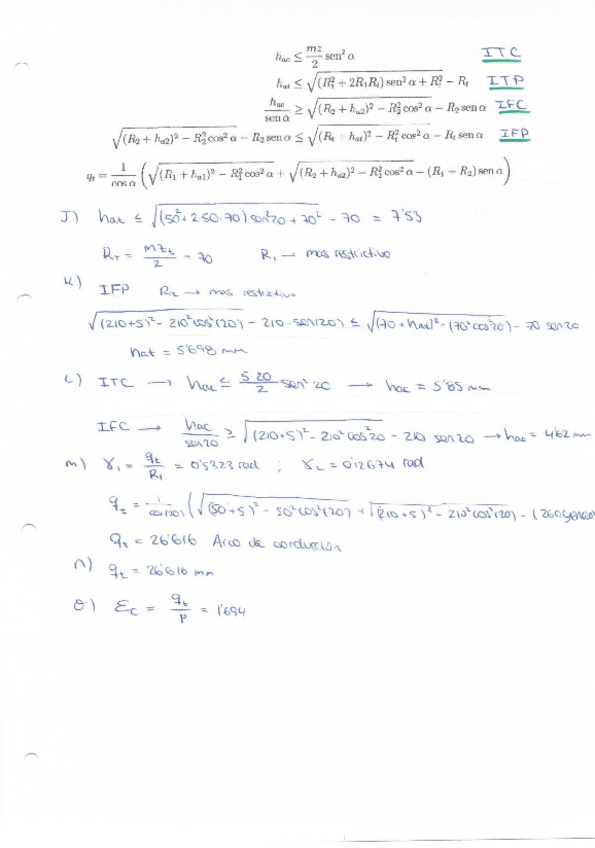 h_ac ≤ mz/2 sen² α   ITC
h_at ≤ √((R₁² + 2R₁R_t) sen² α + R_t²) − R_t   ITP
h_ac/sen α ≥ √((R₂ + h_a2)² − R₂² cos² α) − R₂ sen α   IFC
√((R₂ + h_a2)² − R₂² cos² α) − R₂ sen α ≤ √((R_t + h_at)² − R_t² cos² α) − R_t sen α   IFP
q_t = 1/cos α (√((R₁ + h_a1)² − R₁² cos² α) + √((R₂ + h_a2)² − R₂² cos² α) − (R₁ + R₂) sen α)
J) hat ≤ √((50² + 2·50·70) sen²20 + 70²) − 70 = 7'53
R_T = m z_t/2 = 70   R₁ → mas restrictivo
K) IFP   R₂ → mas restrictivo
√((210+5)² − 210² cos²(20)) − 210·sen(20) ≤ √((70 + hat)² − (70² cos²20)) − 70 sen 20
hat = 5'698 mm
L) ITC → hac ≤ 5·20/2 sen² 20 → hac = 5'85 mm
IFC → hac/sen20 ≥ √((210+5)² − 210² cos²20) − 210 sen 20 → hac = 4'62 mm
m) γ₁ = q_t/R₁ = 0'5323 rad ; γ₂ = 0'12674 rad
q_t = 1/cos(20) (√((50+5)² − 50² cos²(20)) + √((210+5)² − 210² cos²(20)) − (260
q_t = 26'616 Arco de conducción
n) q_t = 26'616 mm
o) ε_c = q_t/p = 1'694